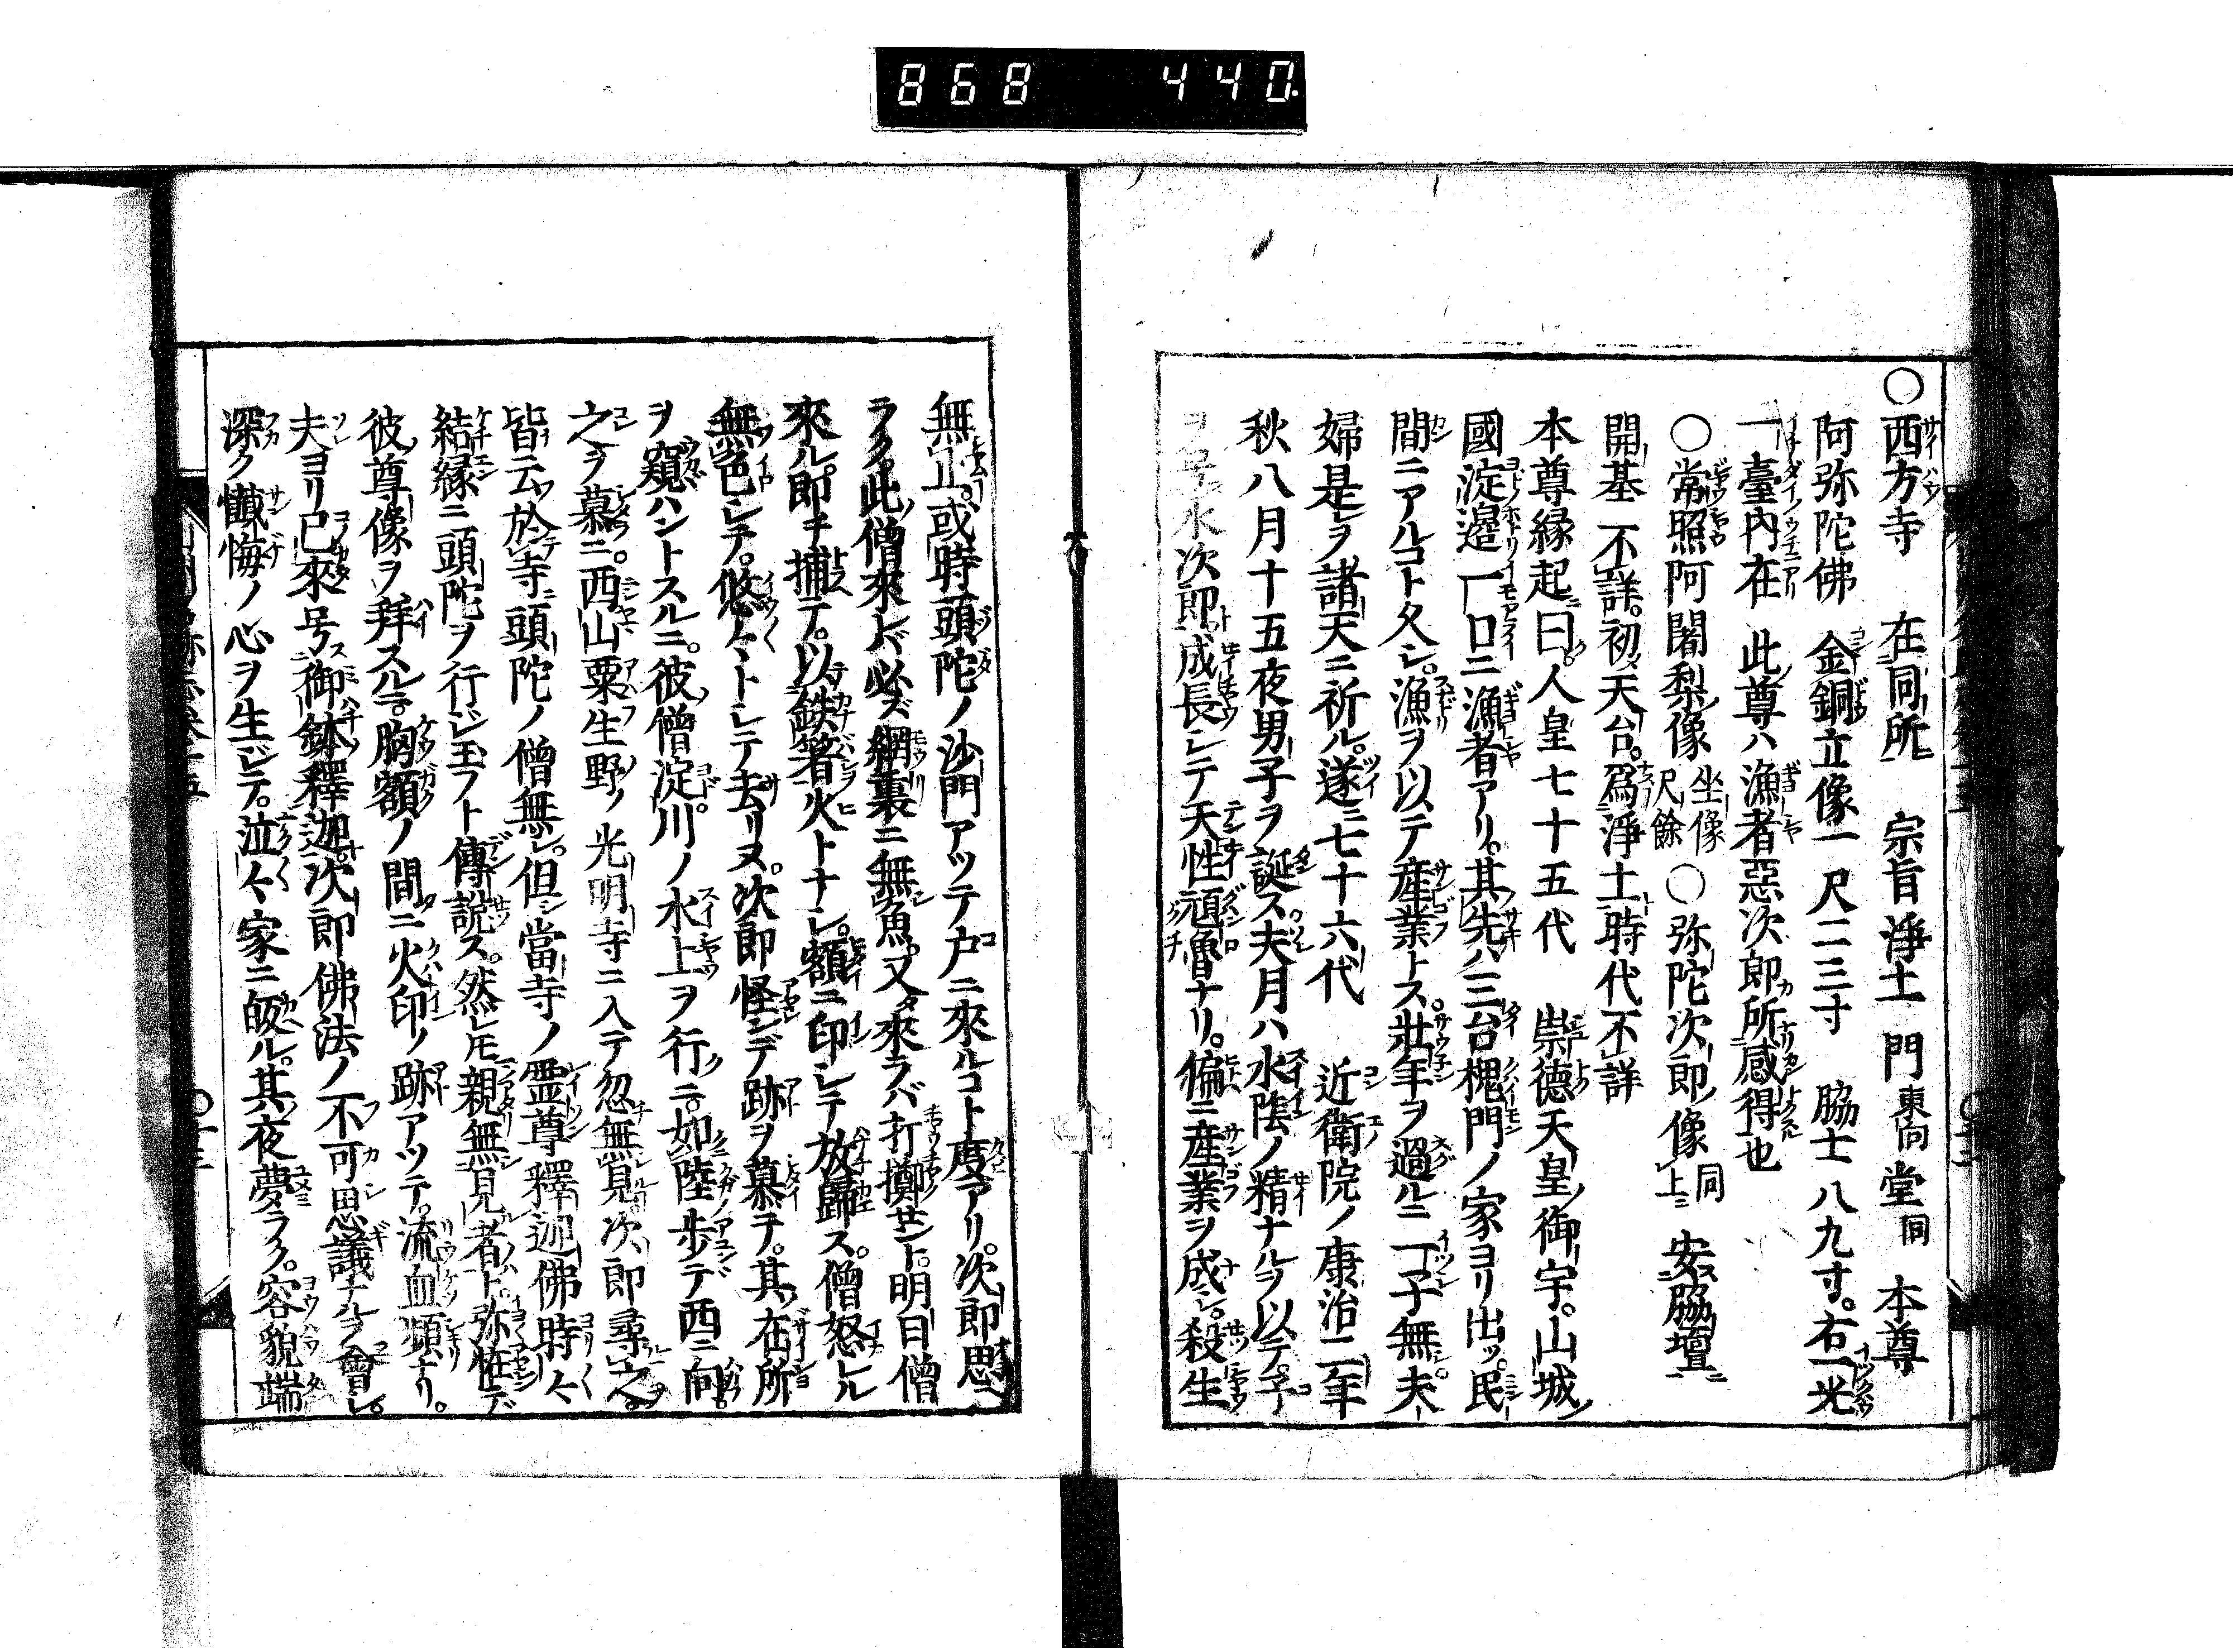 868 440
○西方寺 在同所 宗旨淨土 門東向 堂同 本尊
阿弥陀佛 金銅立像一尺二三寸 脇士八九寸。右一光
一臺内在 此尊ハ漁者惡次郎所感得也
○常照阿闍梨像 坐像尺餘 ○弥陀次郎像 同上 安脇壇
開基不詳。初メ天台。爲淨土時代不詳
本尊縁起曰。人皇七十五代 崇德天皇ノ御宇。山城ノ
國淀邉一口ニ漁者アリ。其先ハ三台槐門ノ家ヨリ出ッ。民
間ニアルコト久シ。漁ヲ以テ産業トス。壯年ヲ過ルニ一子無夫
婦是レヲ諸天ニ祈ル。遂ニ七十六代 近衛院ノ康治二年
秋八月十五夜男子ヲ誕ス。夫月ハ水陰ノ精ナルヲ以テ。子
ヲ号水次郎ト成長シテ天性頑魯ナリ。偏ニ産業ヲ成シ。殺生
無止。或時頭陀ノ沙門アツテ戸ニ來ルコト度アリ。次郎思ヘ
ラク。此僧來レバ必ズ網裏ニ無魚。又タ來ラバ打擲セント。明日僧
來ル。即チ捕テ。以鉄箸火トナシ。額ニ印シテ放歸ス。僧怒レル
無色シテ。悠々トシテ去リヌ。次郎怪シデ跡ヲ慕テ。其在所
ヲ窺ハントスルニ。彼僧淀川ノ水上ヲ行クニ。如陸歩デ西ニ向。
之ヲ慕ニ。西山粟生野ノ光明寺ニ入テ忽無見。次郎尋之。
皆云於寺頭陀ノ僧無シ。但シ當寺ノ霊尊釋迦佛時々
結縁ニ頭陀ヲ行ジ玉フト傳説ス。然レ𪜈親無見者ト。弥恠デ
彼尊像ヲ拜スルニ。胸額ノ間ニ火印ノ跡アツテ。流血頻ナリ。
夫ヨリ已來号御鉢釋迦。次郎佛法ノ不可思議ナルヲ會シ。
深ク懺悔ノ心ヲ生ジテ。泣々家ニ皈ル。其夜夢ラク。容貌端